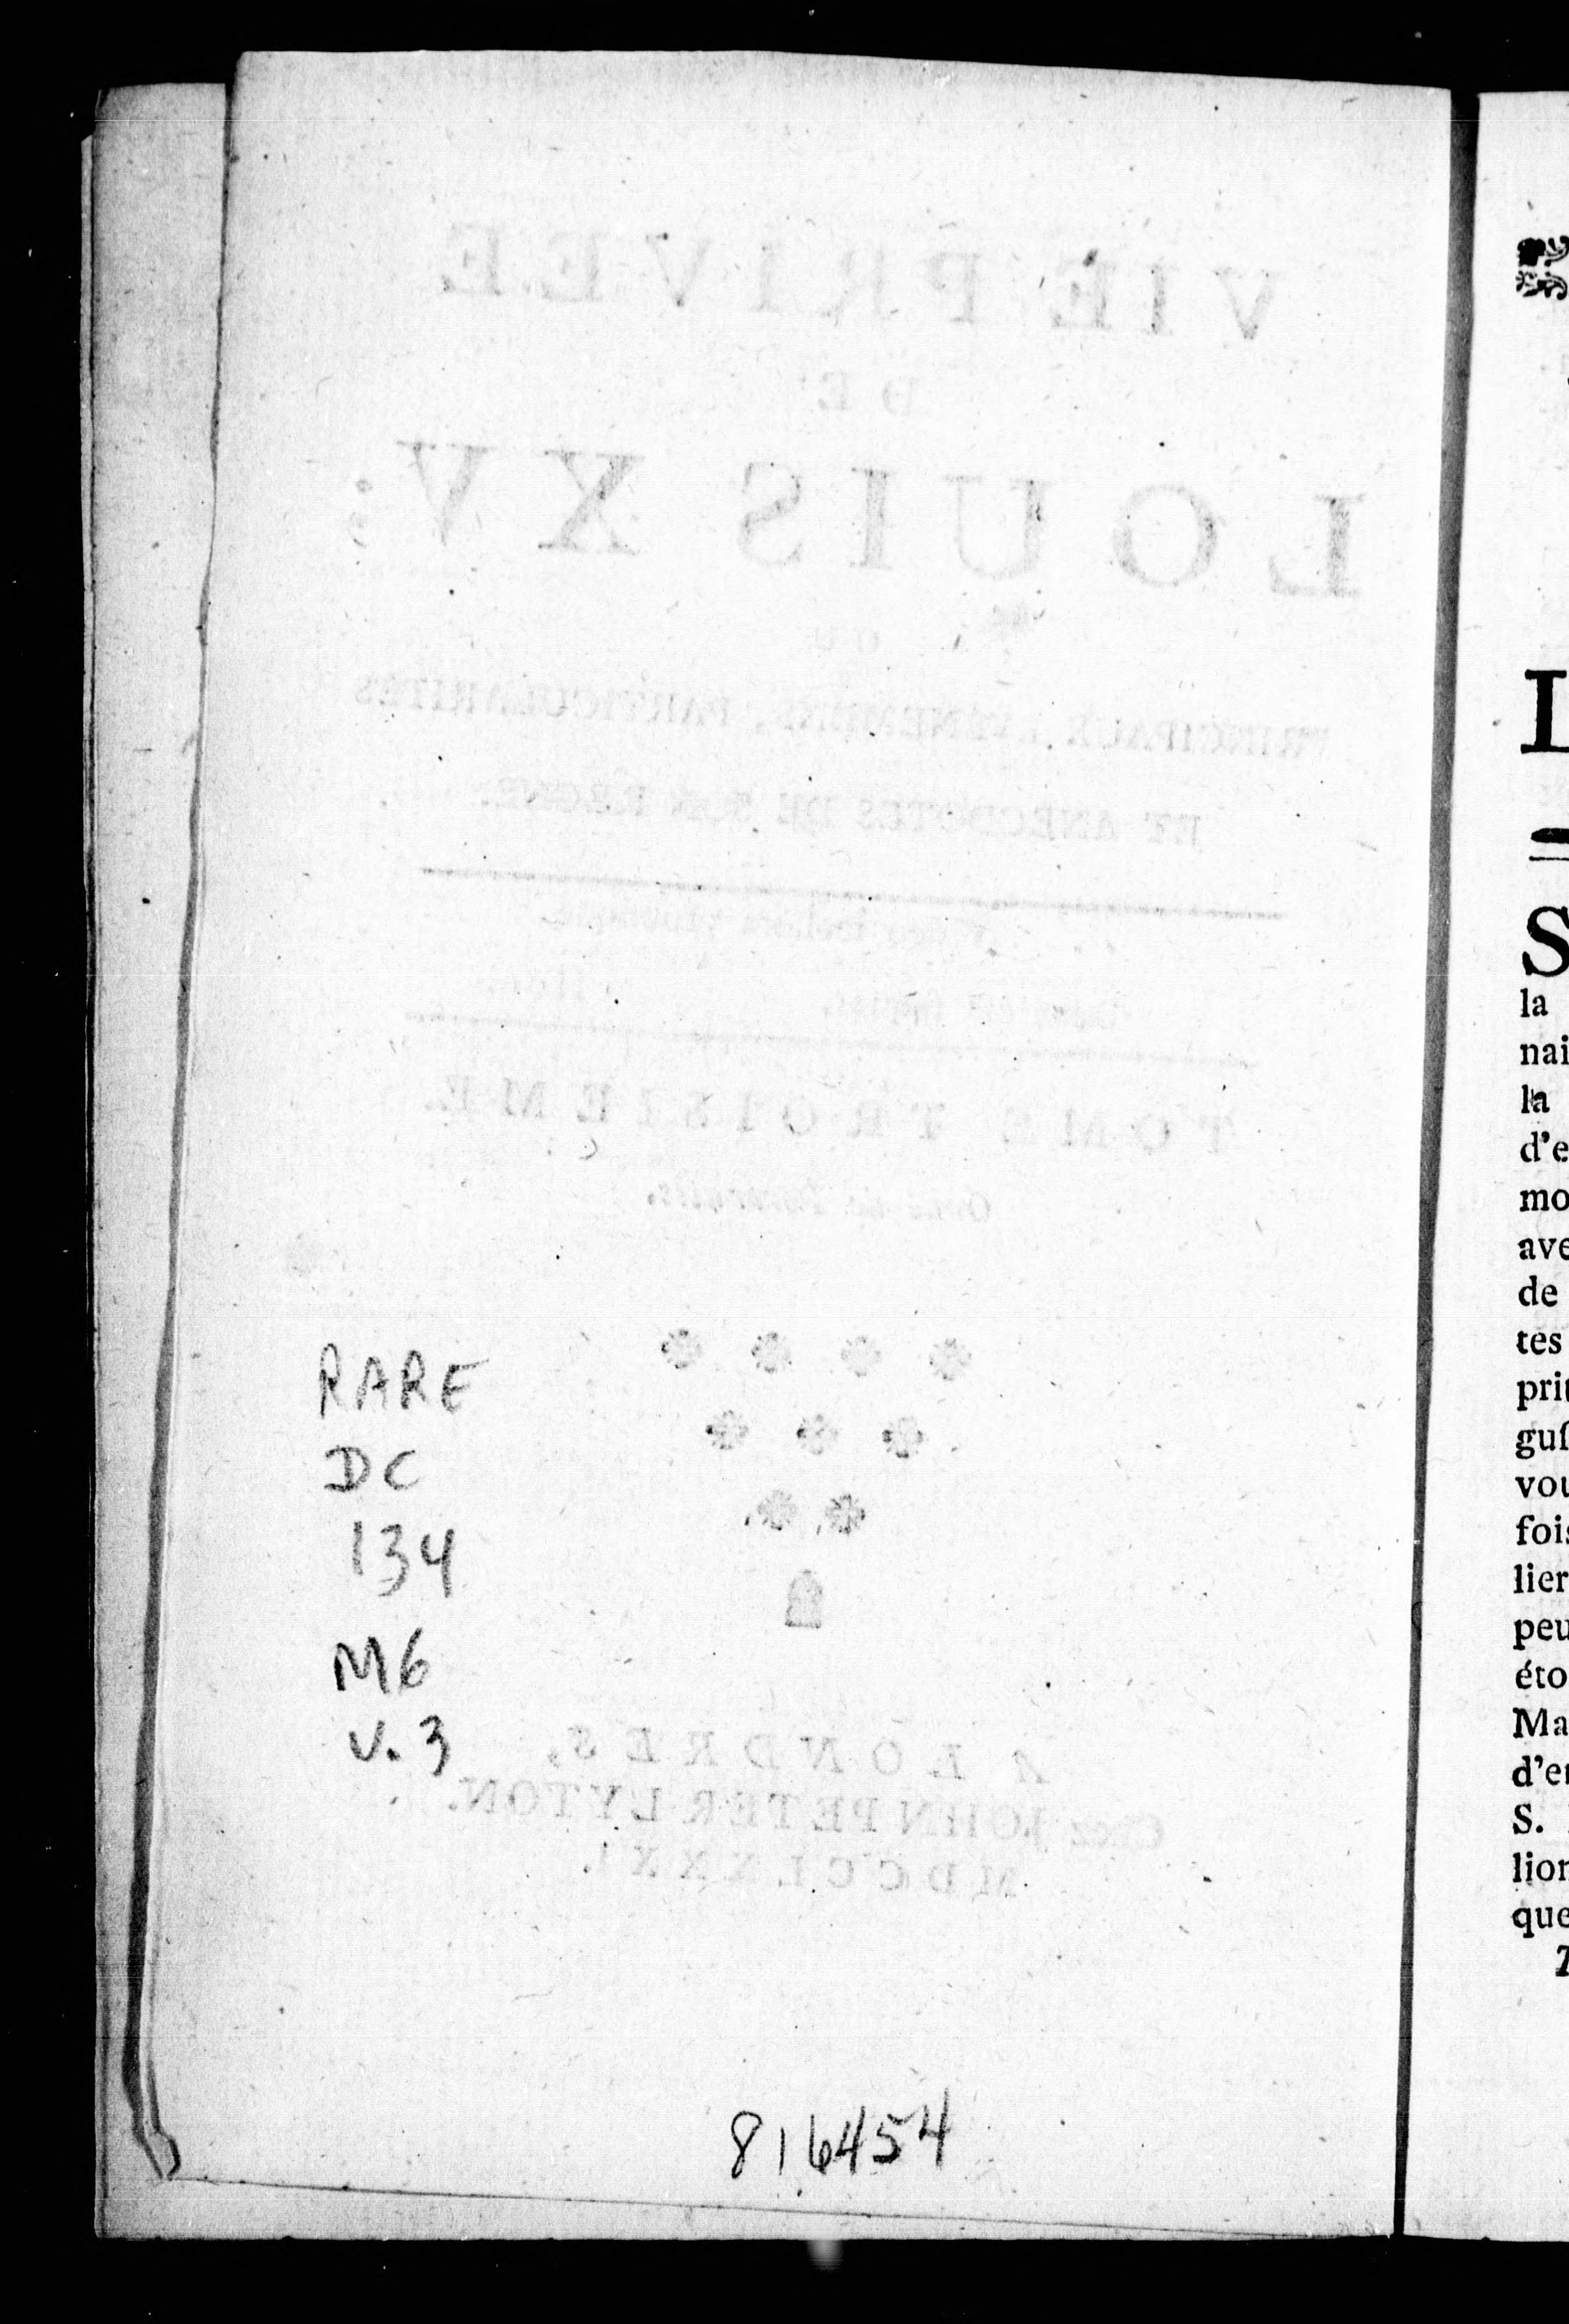 VIE PRIVEE
DE
LOUIS XV;
OU
PRINCIPAUX EVENEMENS, PARTICULARITES
ET ANECDOTES DE SON REGNE.
TOME TROISIEME
Orné de Portraits.
RARE
DC
134
M6
v. 3
A LONDRES,
Chez JOHN PETER LYTON.
MDCCLXXXI.
816454
L
S
la
nai
la
d'e
mo
ave
de
tes
prit
guſ
vou
fois
lier
peu
éto
Ma
d'en
S.
lion
que
T